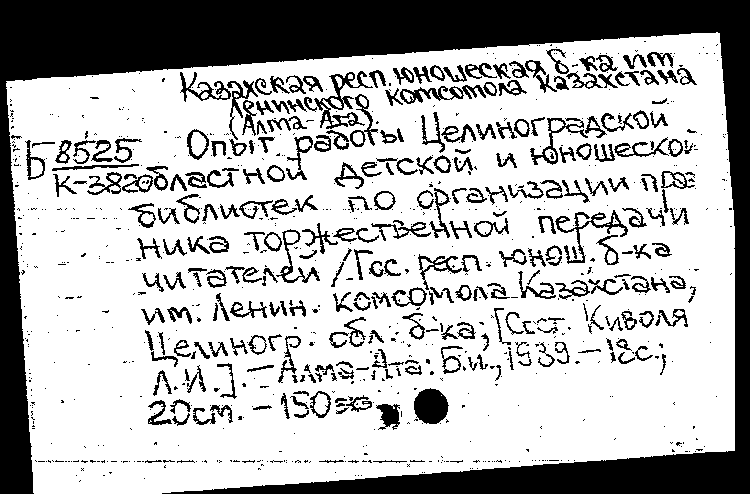 Казахская респ. юношеская б-ка им.
Ленинского комсомола Казахстана
(Алма-Ата).
Б 8525
К-382
Опыт работы Целиноградской
областной детской и юношеской
библиотек по организации праз
ника торжественной передачи
читателей / Гос. респ. юнош. б-ка
им. Ленин. комсомола Казахстана,
Целиногр. обл. б-ка; [Сост. Киволя
Л.И.]. — Алма-Ата: Б.и., 1989. — 18с.;
20см. — 150 экз.